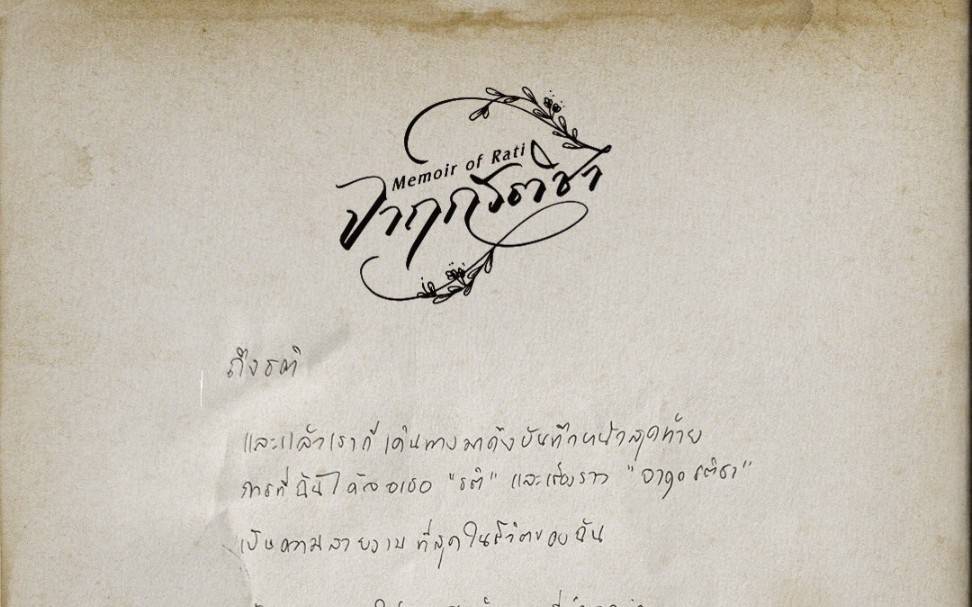 Memoir of Rati
ปากการติชา
ถึงรติ
และแล้วเราก็เดินทางมาถึงบันทึกหน้าสุดท้าย
การที่ฉันได้เจอเธอ "รติ" และเรื่องราว "จาฤกรติชา"
เป็นความสวยงามที่สุดในชีวิตของฉัน